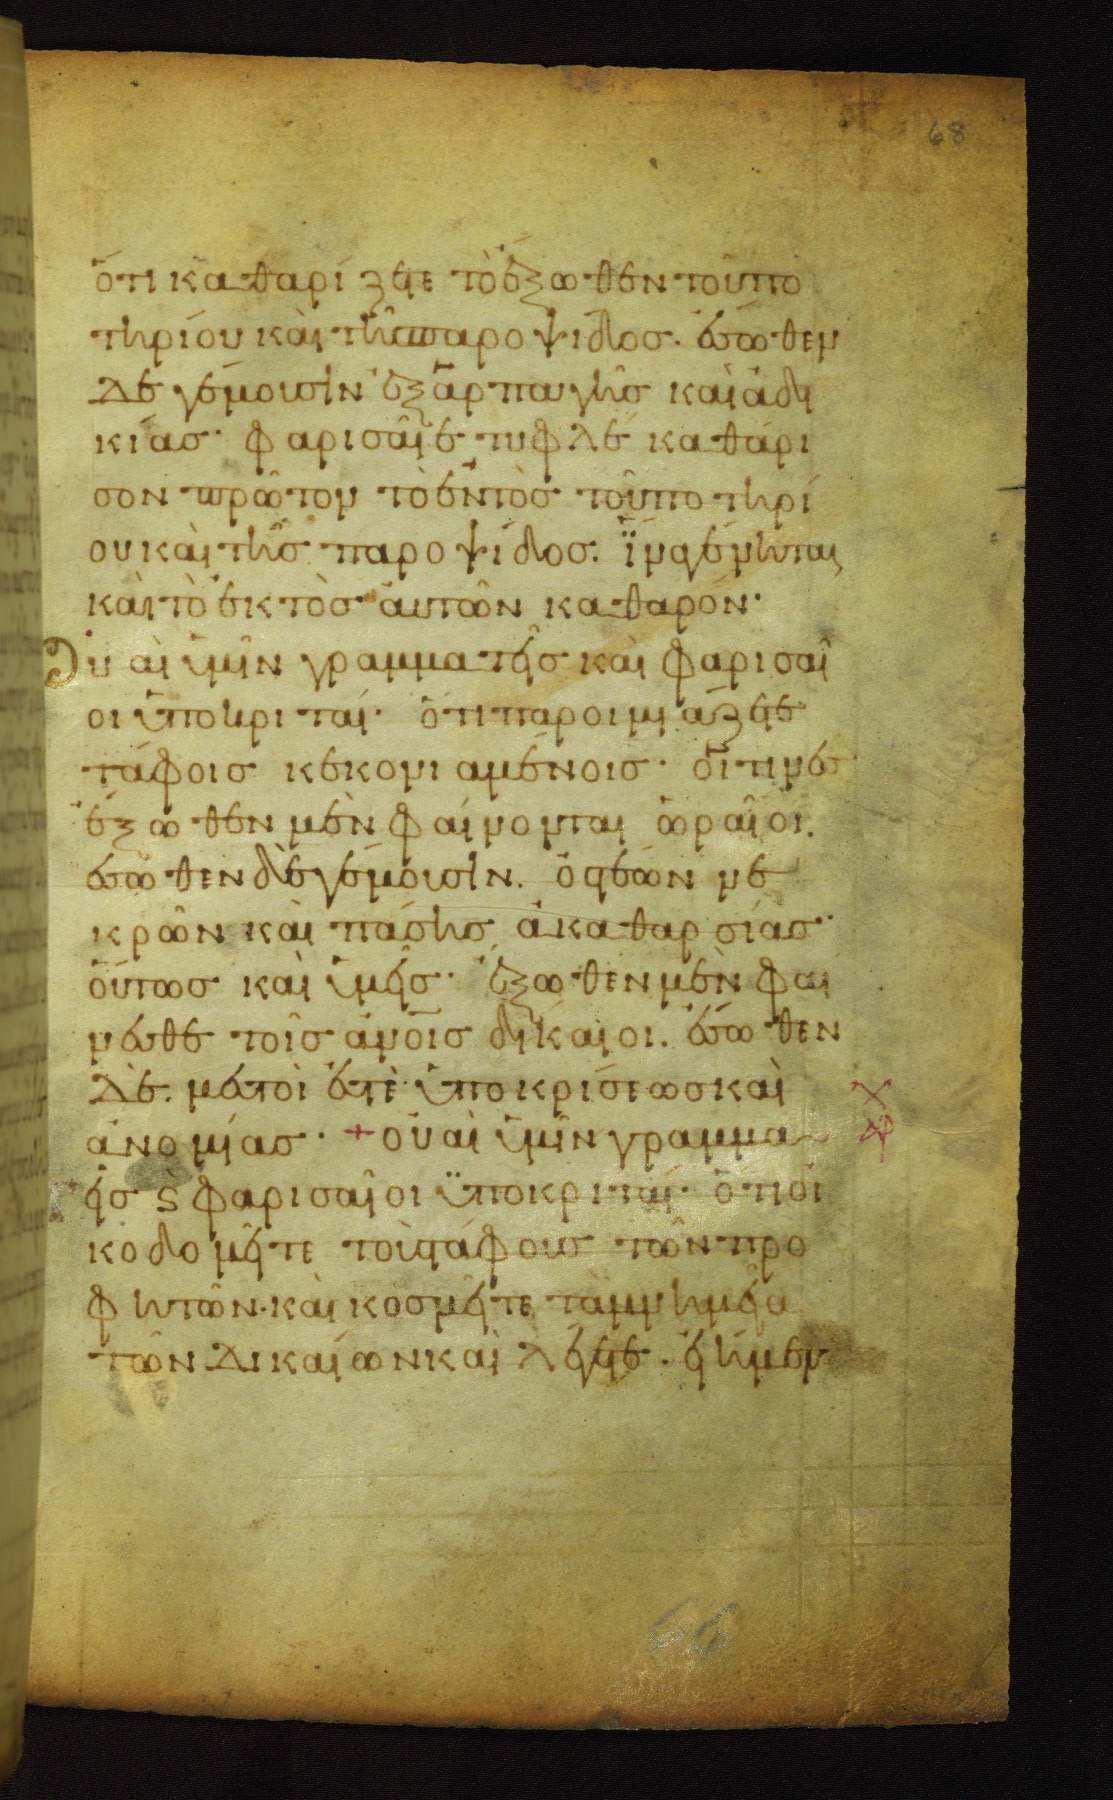 68
ὅτι καθαρίζετε τὸ ἔξωθεν τοῦ πο
τηρίου καὶ τῆς παροψίδος. ἔσωθεν
δὲ γέμουσιν ἐξ ἁρπαγῆς καὶ ἀδι
κίας· φαρισαῖε τυφλέ καθάρι
σον πρῶτον τὸ ἐντὸς τοῦ ποτηρί
ου καὶ τῆς παροψίδος. ἵνα γένηται
καὶ τὸ ἐκτὸς αὐτῶν καθαρόν·
Οὐαὶ ὑμῖν γραμματεῖς καὶ φαρισαῖ
οι ὑποκριταί· ὅτι παροιμιάζετε
τάφοις κεκονιαμένοις· οἵτινες
ἔξωθεν μὲν φαίνονται ὡραῖοι.
ἔσωθεν δὲ γέμουσιν. ὀστέων νε
κρῶν καὶ πάσης ἀκαθαρσίας·
οὕτως καὶ ὑμεῖς· ἔξωθεν μὲν φαί
νεσθε τοῖς ἀνοις δίκαιοι. ἔσωθεν
δὲ. μεστοί ἐστὲ ὑποκρίσεως καὶ
ἀνομίας· + οὐαὶ ὑμῖν γραμμα
τεῖς ϗ φαρισαῖοι ὑποκριταί· ὅτι οἰ
κοδομεῖτε τοὺς τάφους τῶν προ
φητῶν· καὶ κοσμεῖτε τὰ μνημεῖα
τῶν δικαίων καὶ λέγετε. εἰ ἤμεν
66